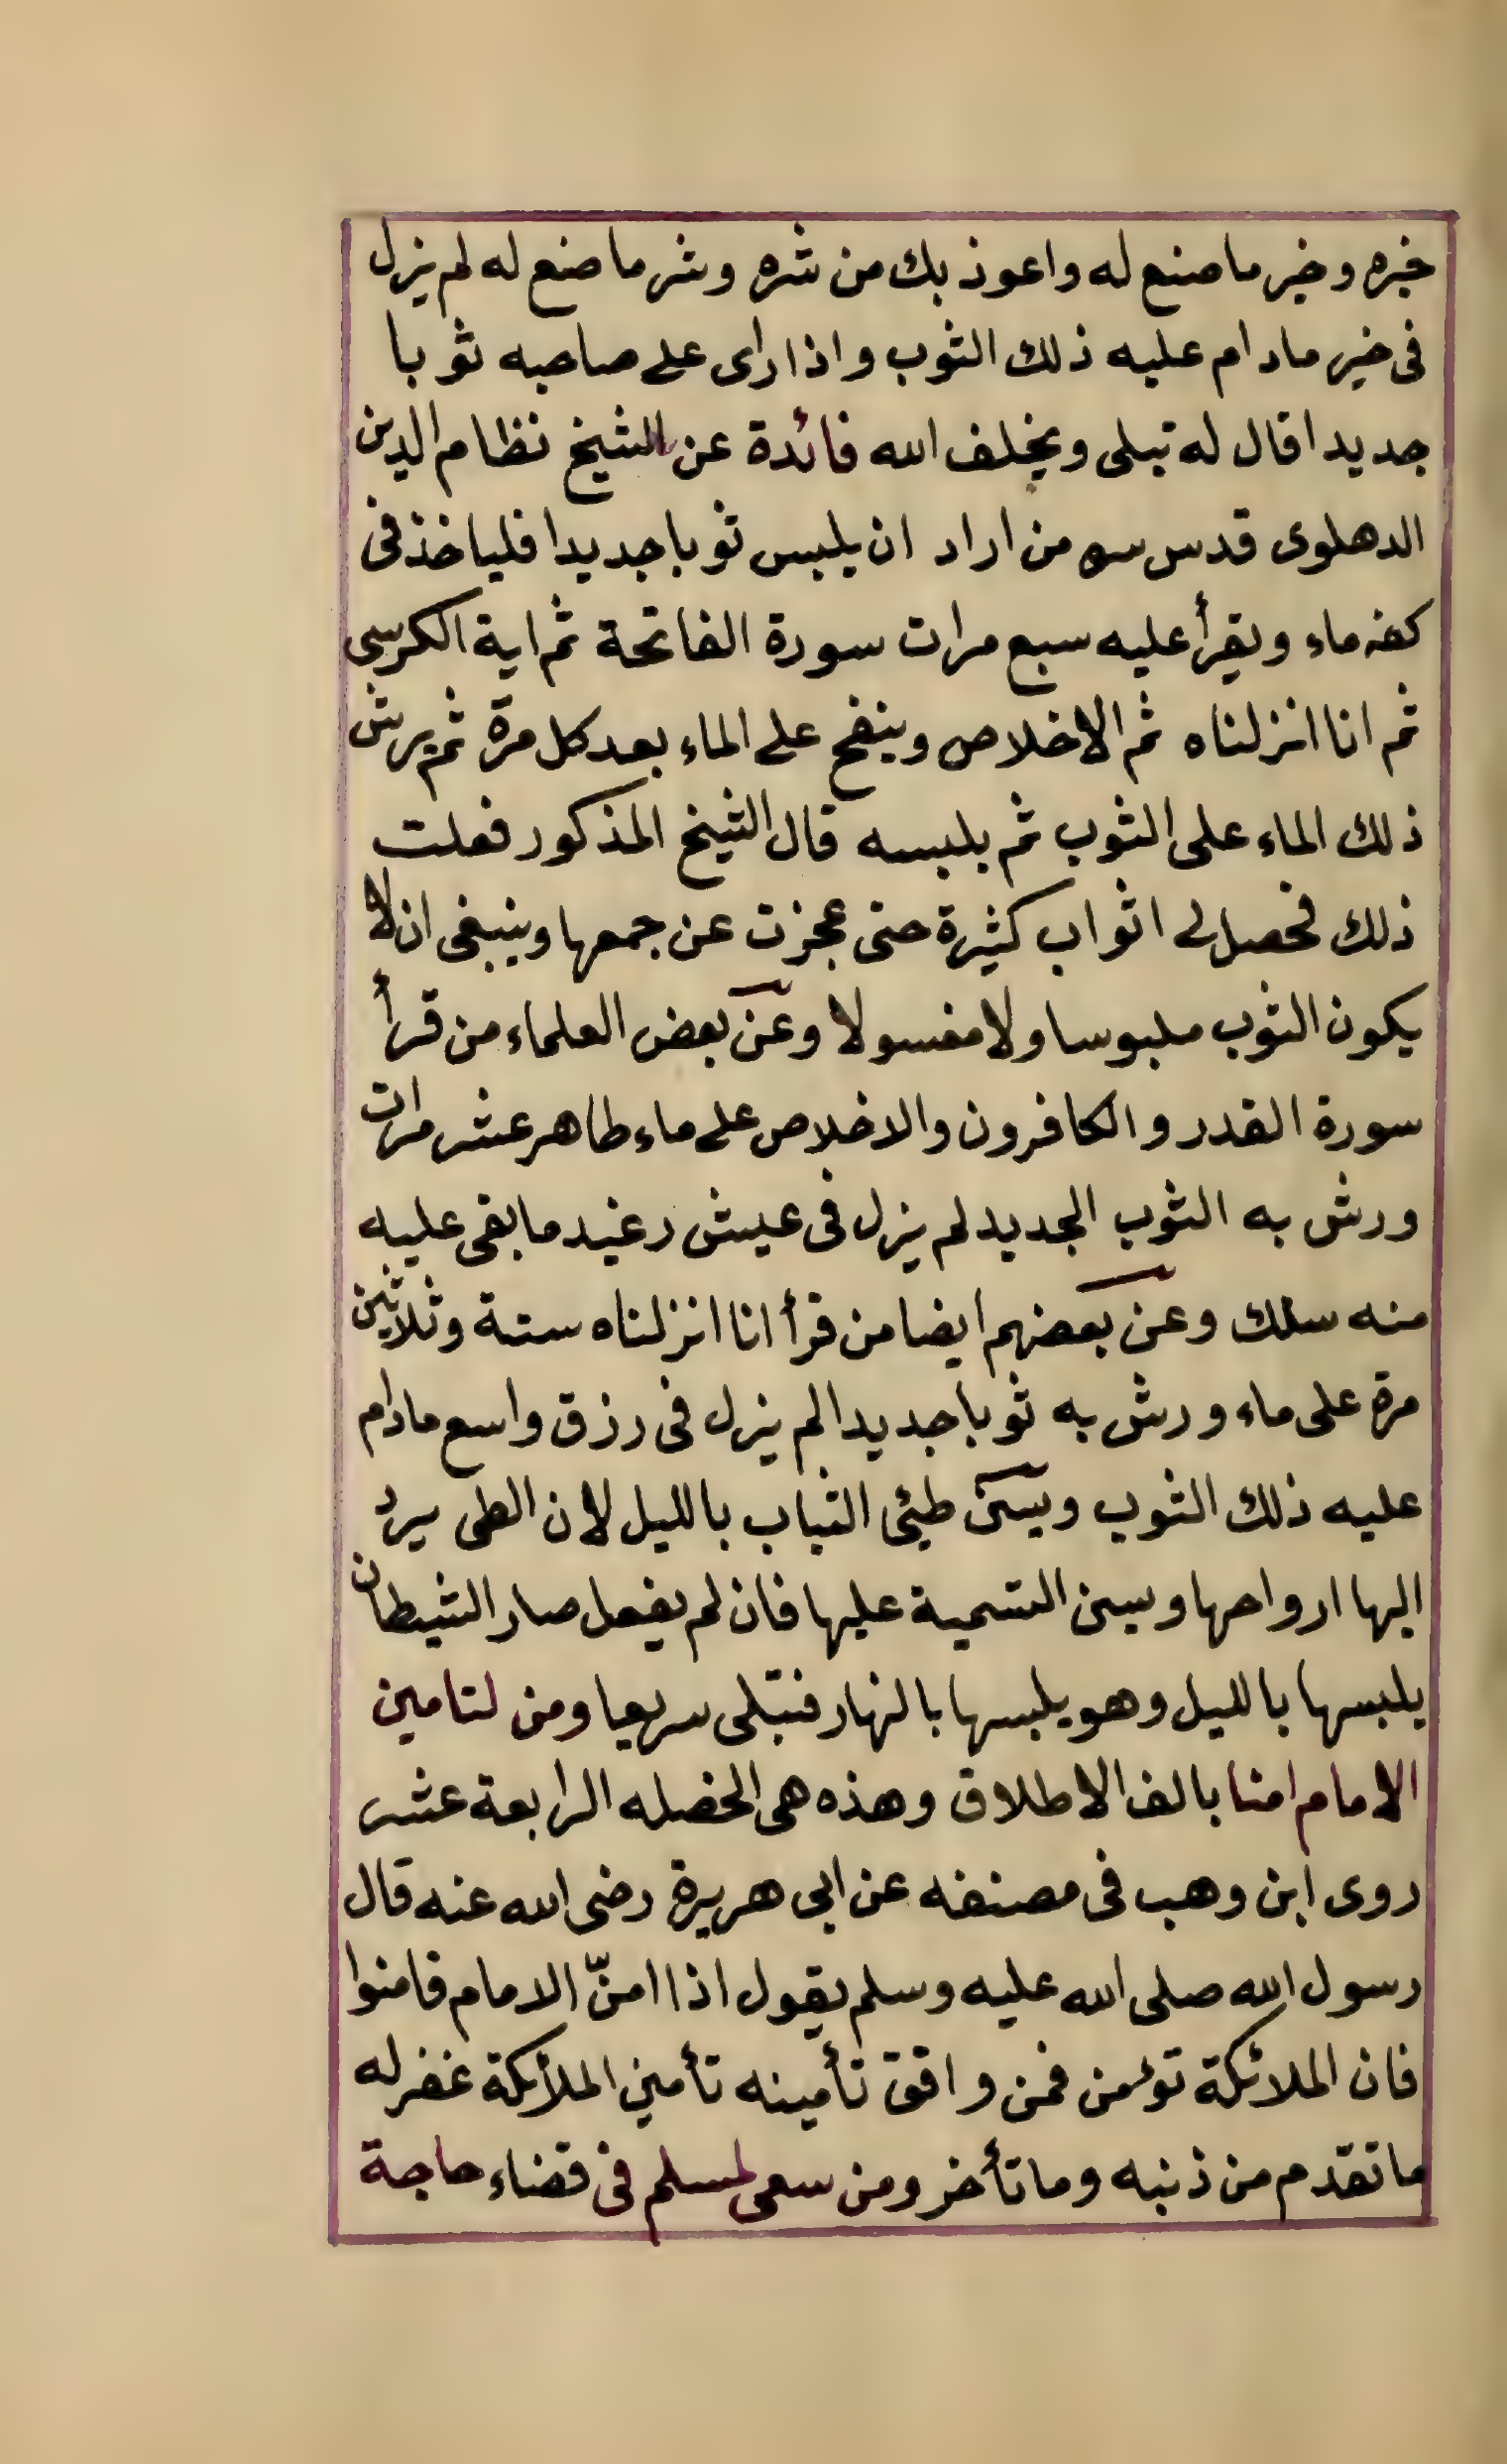 خيره وخير ما صنع له واعوذ بك من شره وشر ما صنع له لم يزل
فى خير ما دام عليه ذلك الثوب واذا راى على صاحبه ثوبا
جديدا قال له تبلى ويخلف الله فائدة عن الشيخ نظام الدين
الدهلوى قدس سره من اراد ان يلبس ثوبا جديدا فلياخذ فى
كفه ماء ويقرأ عليه سبع مرات سورة الفاتحة ثم اية الكرسى
ثم انا انزلناه ثم الاخلاص وينفخ على الماء بعد كل مرة ثم يرش
ذلك الماء على الثوب ثم يلبسه قال الشيخ المذكور فعلت
ذلك فحصل لى اثواب كثيرة حتى عجزت عن جمعها وينبغى ان لا
يكون الثوب ملبوسا ولا مغسولا وعن بعض العلماء من قرأ
سورة القدر والكافرون والاخلاص على ماء طاهر عشر مرات
ورش به الثوب الجديد لم يزل فى عيش رغيد ما بقى عليه
منه سلك وعن بعضهم ايضا من قرأ انا انزلناه ستة وثلاثين
مرة على ماء ورش به ثوبا جديدا لم يزل فى رزق واسع مادام
عليه ذلك الثوب ويسن طيئ الثياب بالليل لان الطى يرد
اليها ارواحها ويسن التسمية عليها فان لم يفعل صار الشيطان
يلبسها بالليل وهو يلبسها بالنهار فتبلى سريعا ومن لتامين
الامام امنا بالف الاطلاق وهذه هى الخصله الرابعة عشر
روى ابن وهب فى مصنفه عن ابى هريرة رضى الله عنه قال
رسول الله صلى الله عليه وسلم يقول اذا امنّ الامام فامنوا
فان الملائكة تؤمن فمن وافق تأمينه تأمين الملائكة غفر له
ما تقدم من ذنبه وما تأخر ومن سعى لمسلم فى قضاء حاجة